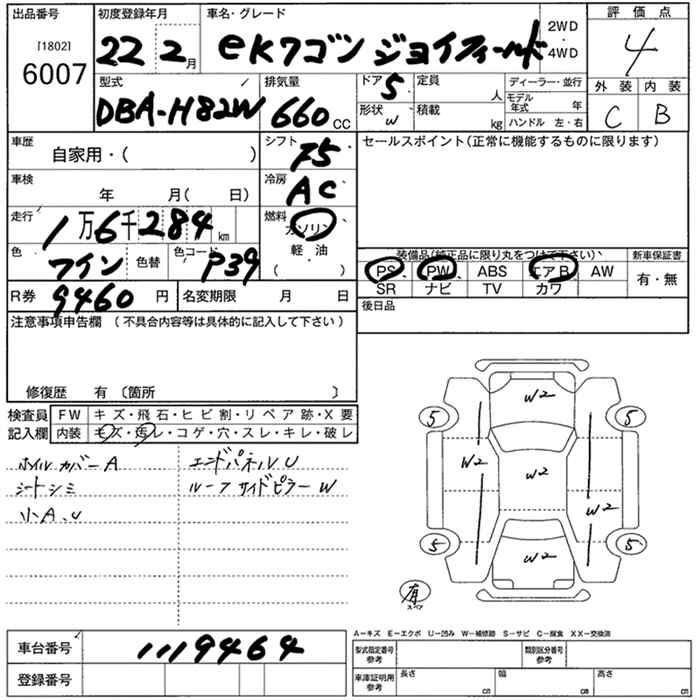 出品番号 初度登録年月 車名・グレード 評価点
[1802] 22 2月 eKワゴン ジョイフィールド 2WD・4WD 4
6007
型式 排気量 ドア 5 定員 人 ディーラー・並行 外装 内装
DBA-H82W 660CC 形状 W 積載 kg モデル年式 年 C B
ハンドル 左・右
車歴 シフト セールスポイント(正常に機能するものに限ります)
自家用・( ) F5
車検 冷房
年 月( 日) AC
走行 燃料
1万6千284km ガソリン
色 色替 色コード 軽油
ワイン P39 ( )
装備品(純正品に限り丸をつけて下さい) 新車保証書
PS PW ABS エアB AW 有・無
SR ナビ TV カワ
R券 9460円 名変期限 月 日 後日品
注意事項申告欄(不具合内容等は具体的に記入して下さい)
修復歴 有〔箇所 〕
検査員 FW キズ・飛石・ヒビ割・リペア跡・X要
記入欄 内装 キズ・汚レ・コゲ・穴・スレ・キレ・破レ
ホイルカバーA エンドパネルU
シートシミ ルーフサイドピラーW
小A、U
W2
5 5
W2 W2 W2
5 5
W2
有
スペア
A−キズ E−エクボ U−凹み W−補修跡 S−サビ C−腐食 XX−交換済
車台番号 1119464 型式指定番号 参考 類別区分番号 参考
登録番号 車庫証明用 参考 長さ cm 幅 cm 高さ cm